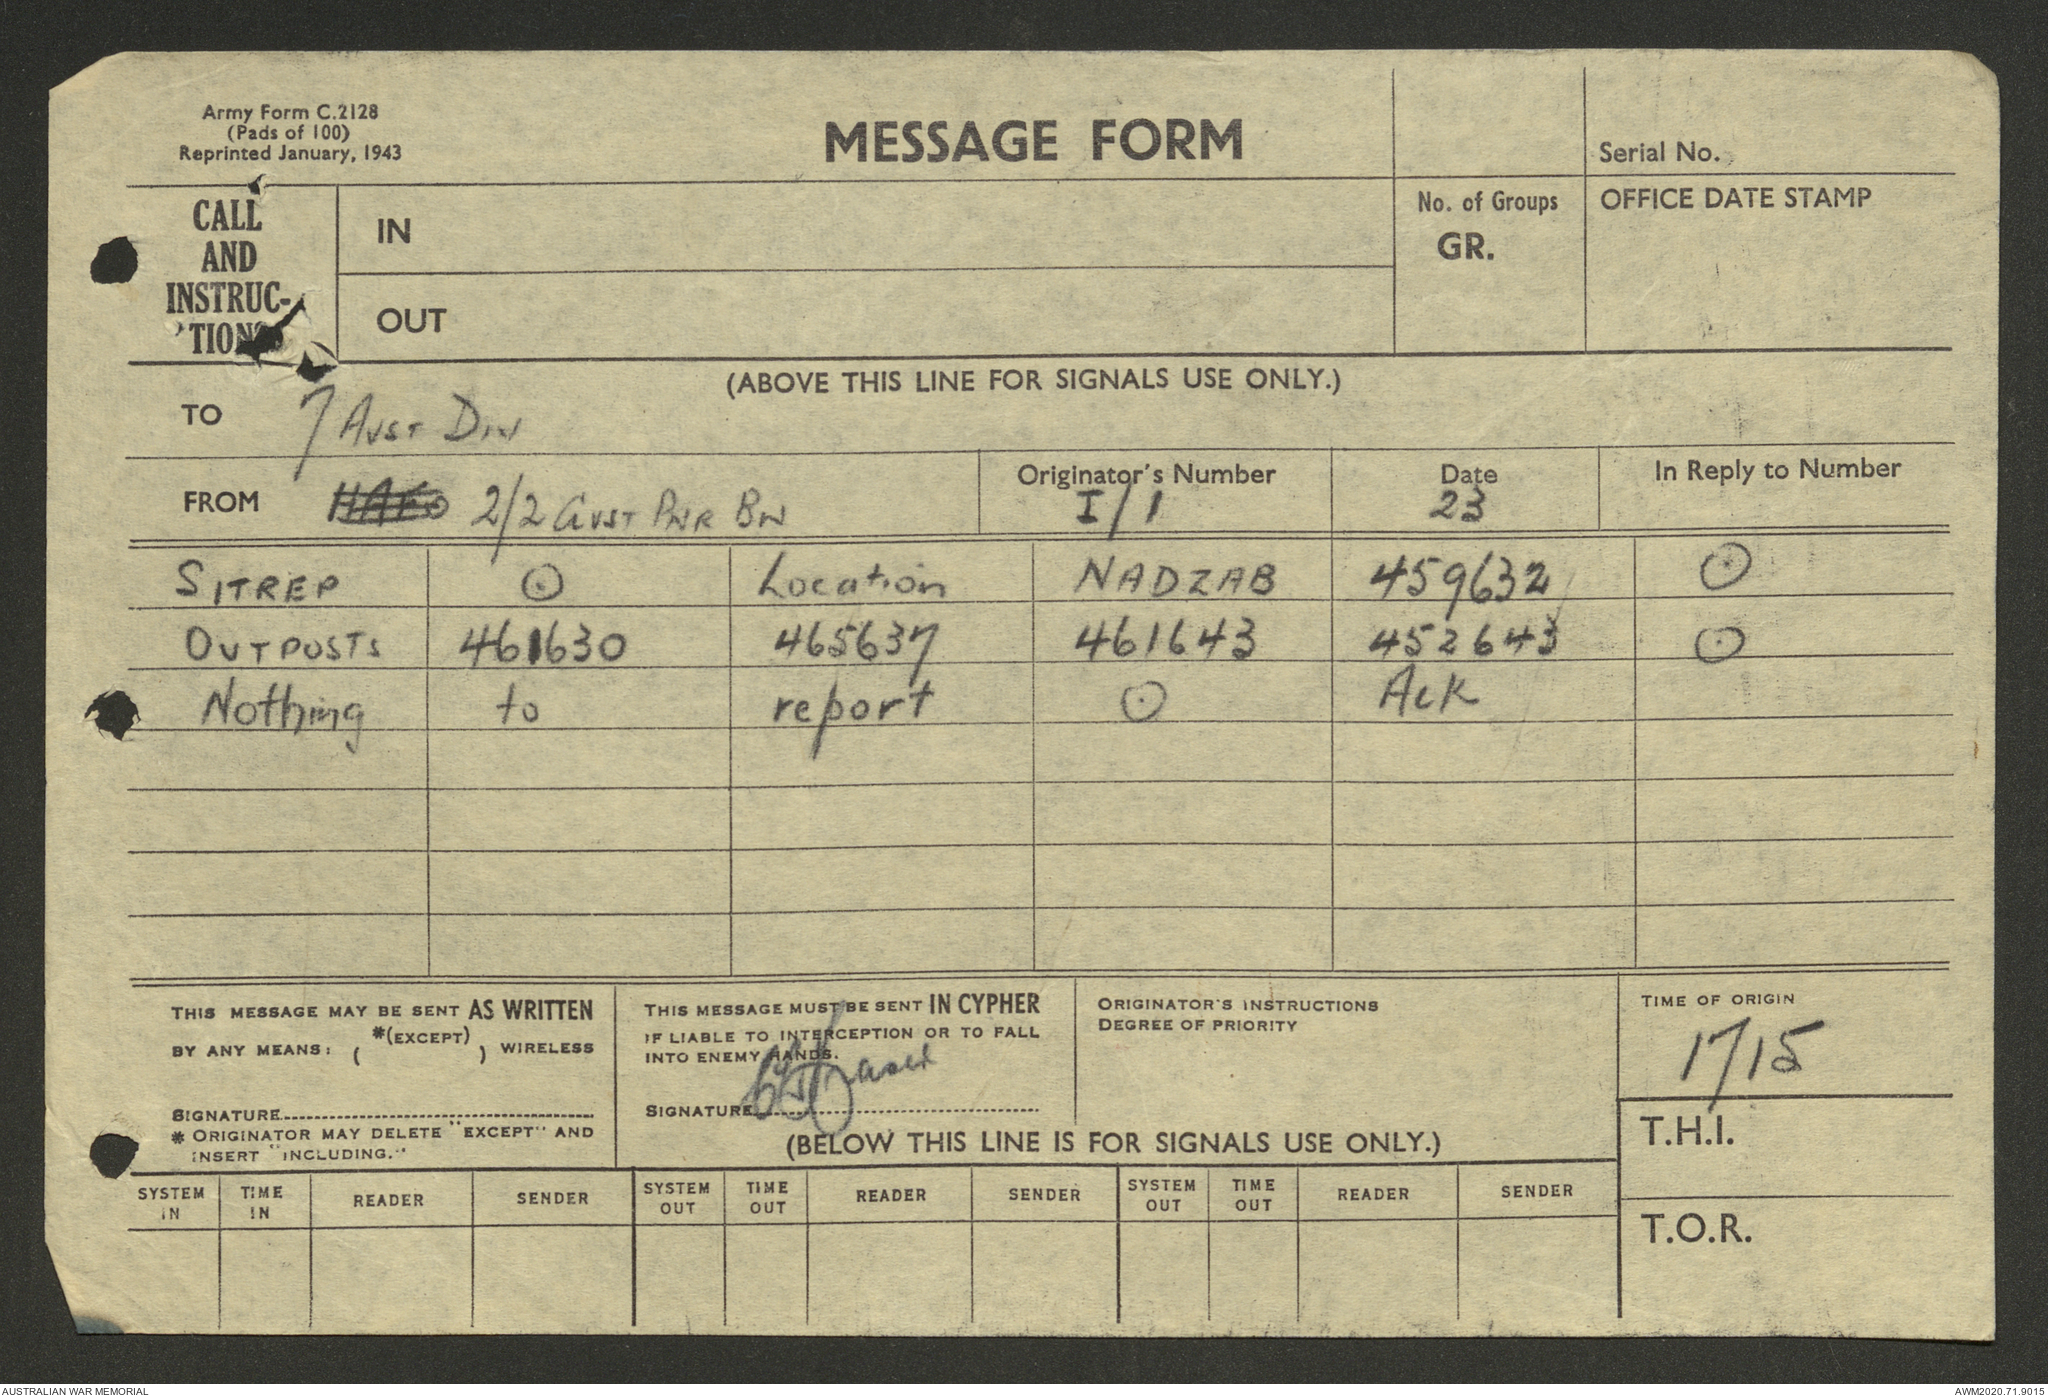 Army Form C.2128
(Pads of 100)
Reprinted January, 1943
MESSAGE FORM
Serial No.
CALL
AND
INSTRUC-
TIONS
IN
OUT
No. of Groups
GR.
OFFICE DATE STAMP
(ABOVE THIS LINE FOR SIGNALS USE ONLY.)
TO 7 AUST DIV
FROM 2/2 AUST PNR BN
Originator's Number
I/1
Date
23
In Reply to Number
SITREP ⊙ Location NADZAB 459632 ⊙
OUTPOSTS 461630 465637 461643 452643 ⊙
Nothing to report ⊙ Ack
THIS MESSAGE MAY BE SENT AS WRITTEN
BY ANY MEANS: ( *(EXCEPT) ) WIRELESS
SIGNATURE
* ORIGINATOR MAY DELETE "EXCEPT" AND
INSERT "INCLUDING."
THIS MESSAGE MUST BE SENT IN CYPHER
IF LIABLE TO INTERCEPTION OR TO FALL
INTO ENEMY HANDS.
SIGNATURE
ORIGINATOR'S INSTRUCTIONS
DEGREE OF PRIORITY
TIME OF ORIGIN
1715
(BELOW THIS LINE IS FOR SIGNALS USE ONLY.)
T.H.I.
T.O.R.
SYSTEM IN TIME IN READER SENDER SYSTEM OUT TIME OUT READER SENDER SYSTEM OUT TIME OUT READER SENDER
AUSTRALIAN WAR MEMORIAL
AWM2020.71.9015